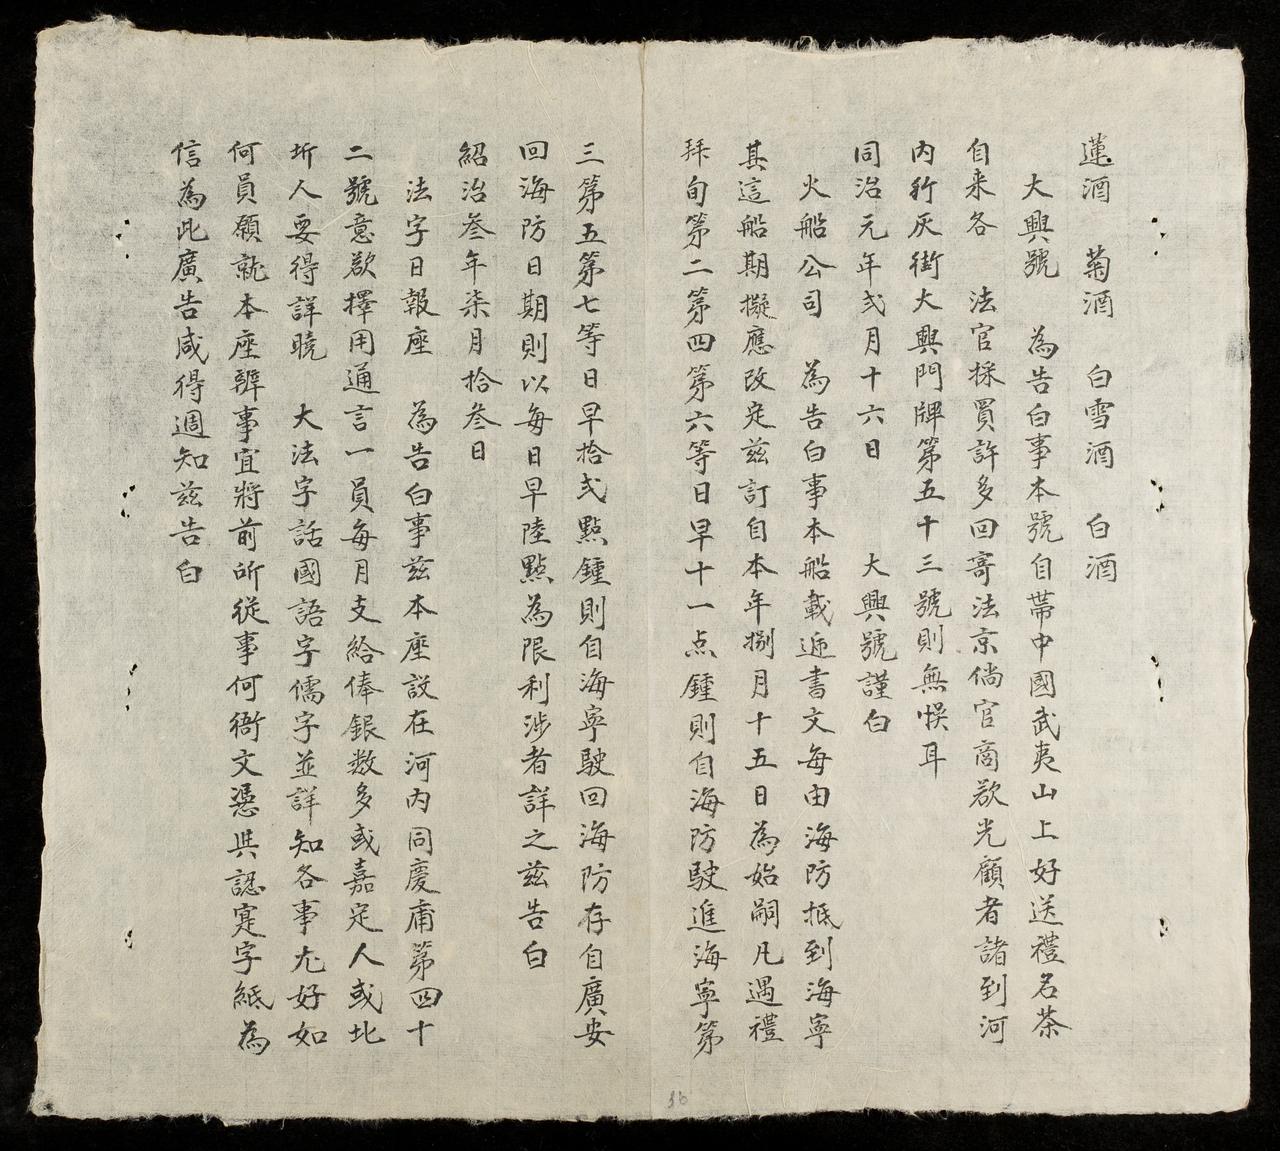 蓮酒　菊酒　白雪酒　白酒
大興號　為告白事本號自帶中國武夷山上好送禮名茶
自来各　法官採買許多回寄法京倘官商欲光顧者諸到河
内行灰街大興門牌第五十三號則無悞耳
同治元年弍月十六日　大興號謹白
火船公司　為告白事本船載遞書文每由海防抵到海寧
其這船期擬應改定兹訂自本年捌月十五日為始嗣凡遇禮
拜旬第二第四第六等日早十一点鍾則自海防駛進海寧第
三第五第七等日早拾弍點鍾則自海寧駛回海防存自廣安
回海防日期則以每日早陸點為限利涉者詳之兹告白
紹治叁年柒月拾叁日
法字日報座　為告白事兹本座設在河内同慶庯第四十
二號意欲擇用通言一員每月支給俸銀数多或嘉定人或北
圻人要得詳曉　大法字話國語字儒字並詳知各事尤好如
何員願就本座辦事宜將前所從事何衙文憑與認寔字紙為
信為此廣告咸得週知兹告白
16